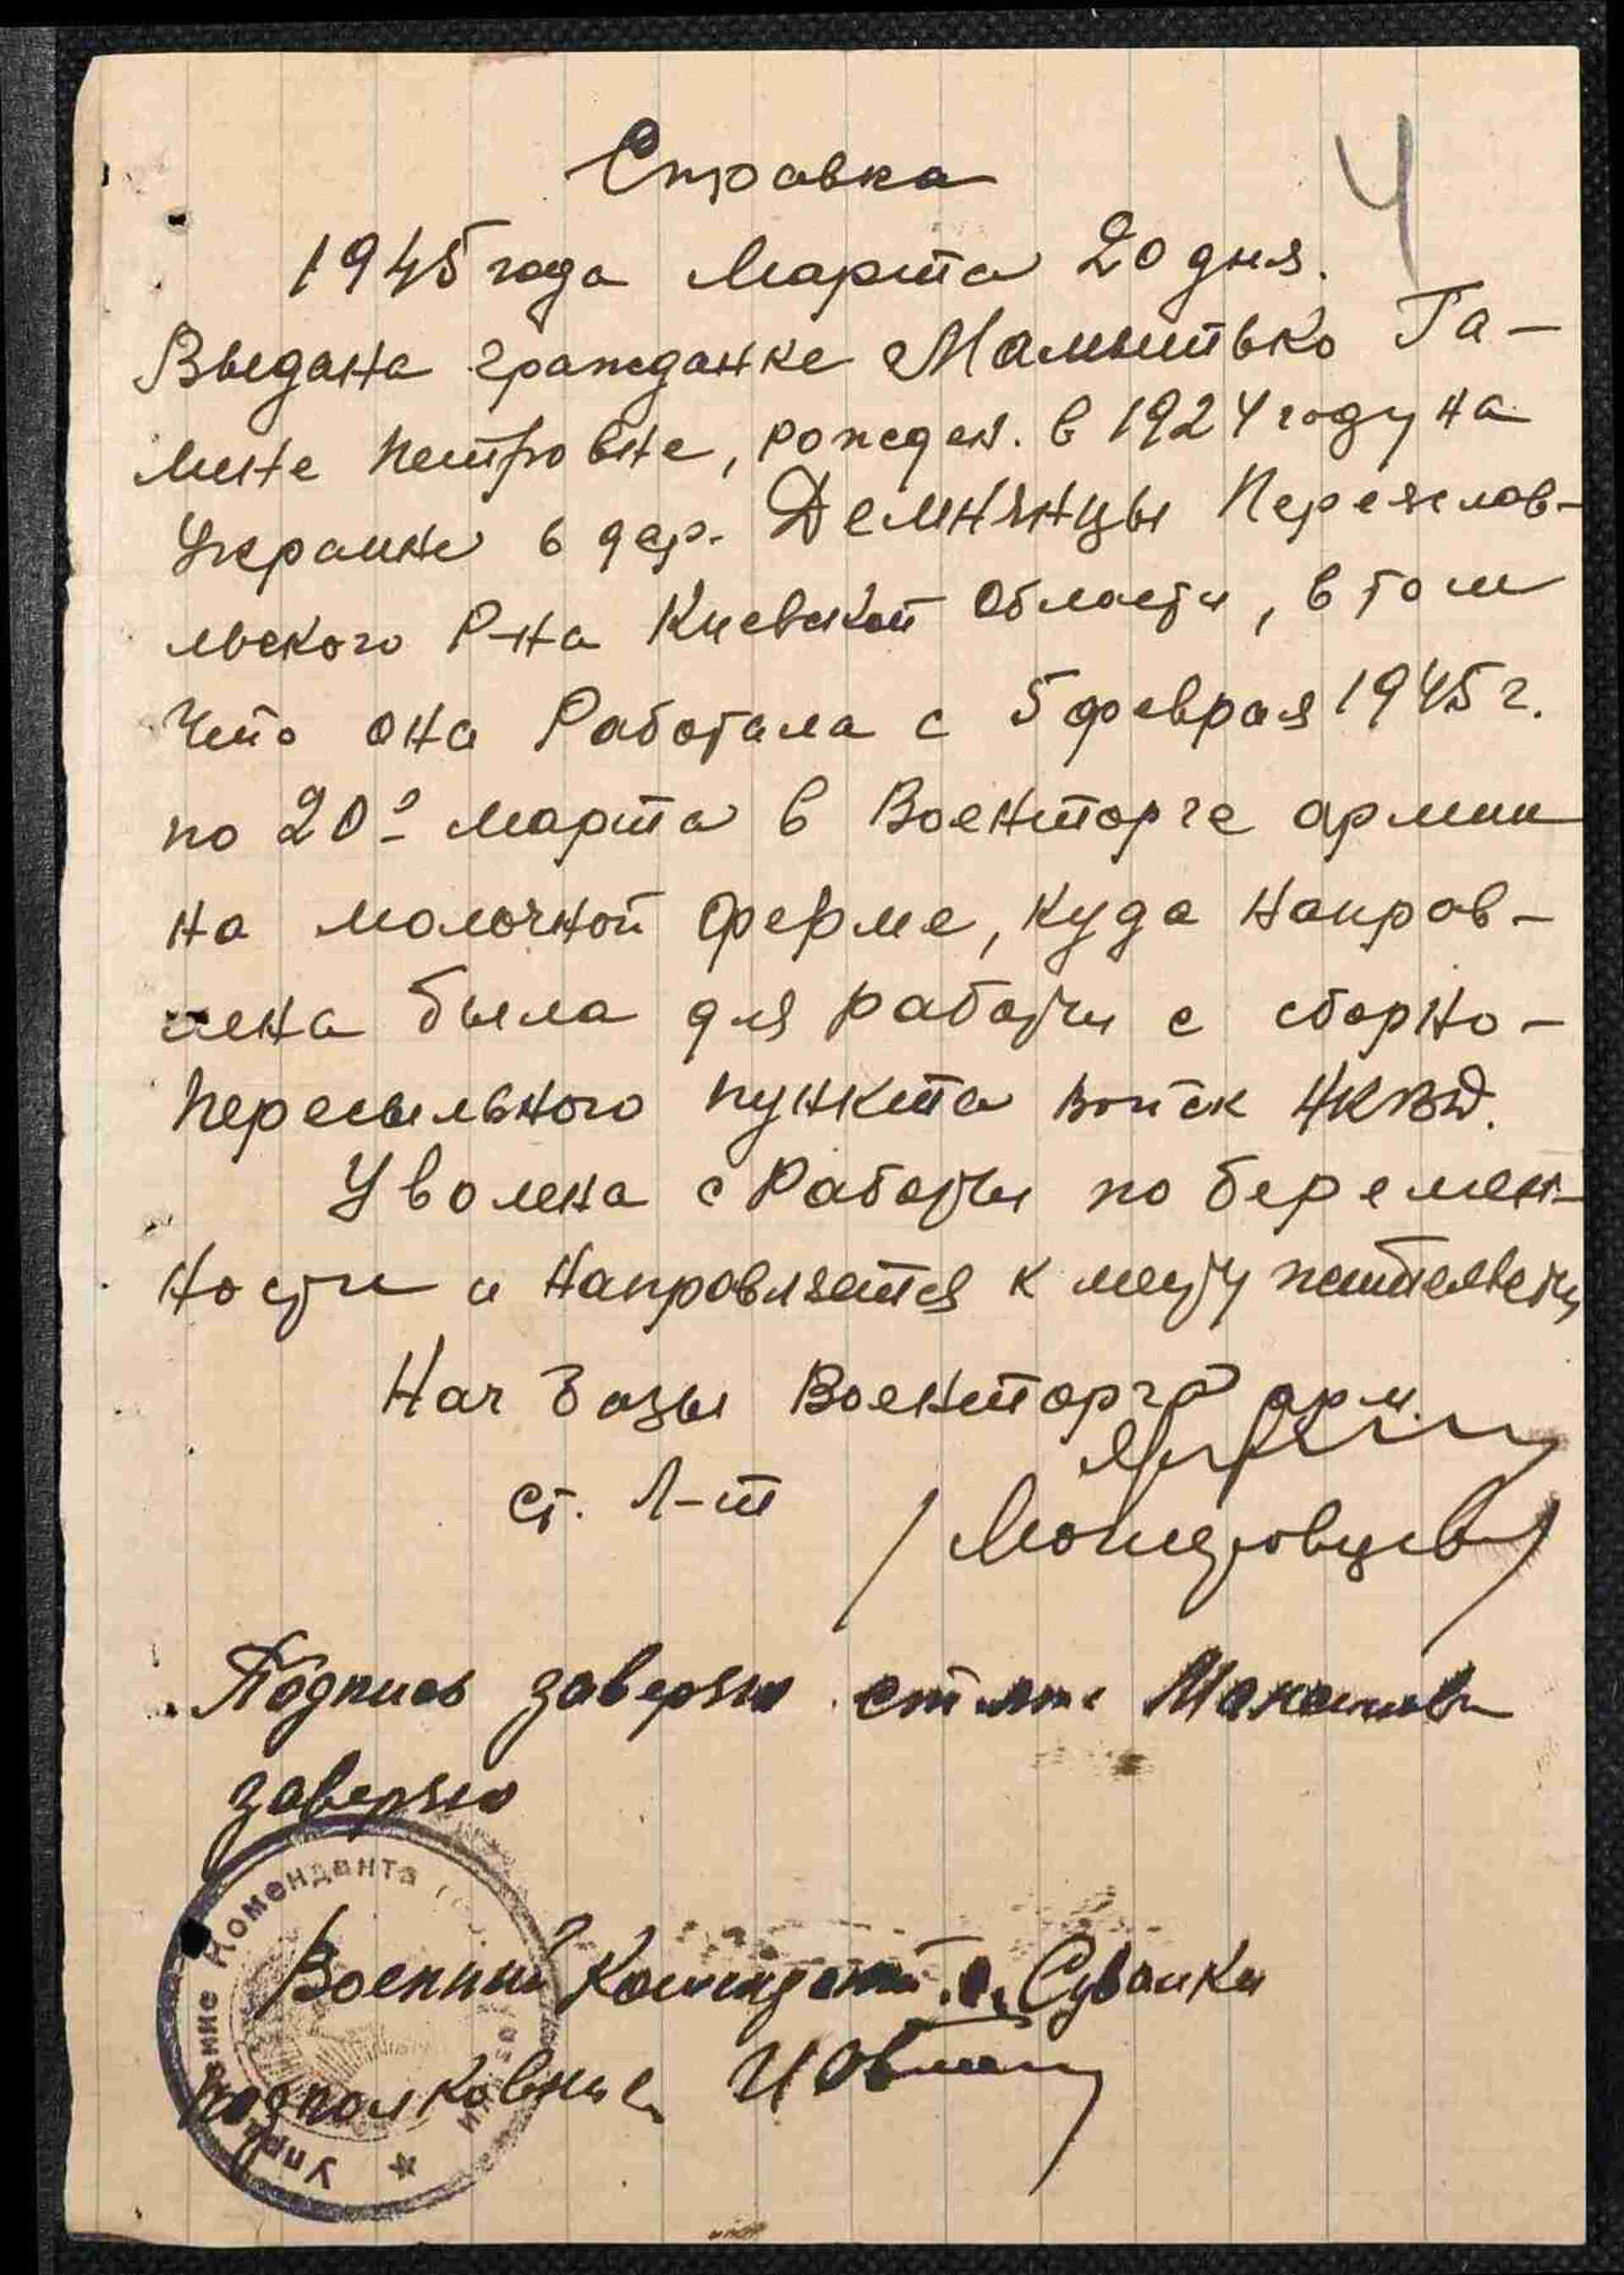 4
Справка
1945 года Марта 20 дня.
Выдана гражданке Мамытько Га-
лине Петровне, рожден. в 1924 году на
Украине в дер. Демнянцы Переяслав-
льского Р-на Киевской области, в том
что она Работала с 5 феврая 1945 г.
по 20е марта в Военторге армии
на молочной ферме, куда направ-
лена была для работы с сборно-
пересыльного пункта войск НКВД.
Уволена с Работы по беремен-
ности и направляется к месту жительства
Нач базы Военторга арм.
ст. Л-т
Подпись заверяю ст
заверяю
Военный Комендант г. Сувалки
подполковник
Управление Коменданта